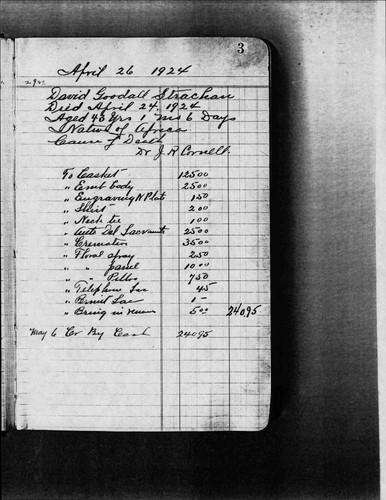 3
April 26 1924
David Goodall Strachan
Died April 24, 1924
Aged 43 yrs 1 mo 6 Days
Native of Africa
Cause of Death
Dr J. R Cornell.
To Casket 125 00
" Emb body 25 00
" Engraving N Plate 1 50
" Shirt 2 00
" Neck tie 1 00
" Auto Del Sacramento 25 00
" Cremation 35 00
" Floral spray 2 50
" " 10 00
" " Pillow 7 50
" Telephone 45
" Permit Sac 1 -
" Bring in 5 00 240.95
May 6 Cr By Cash 240 95